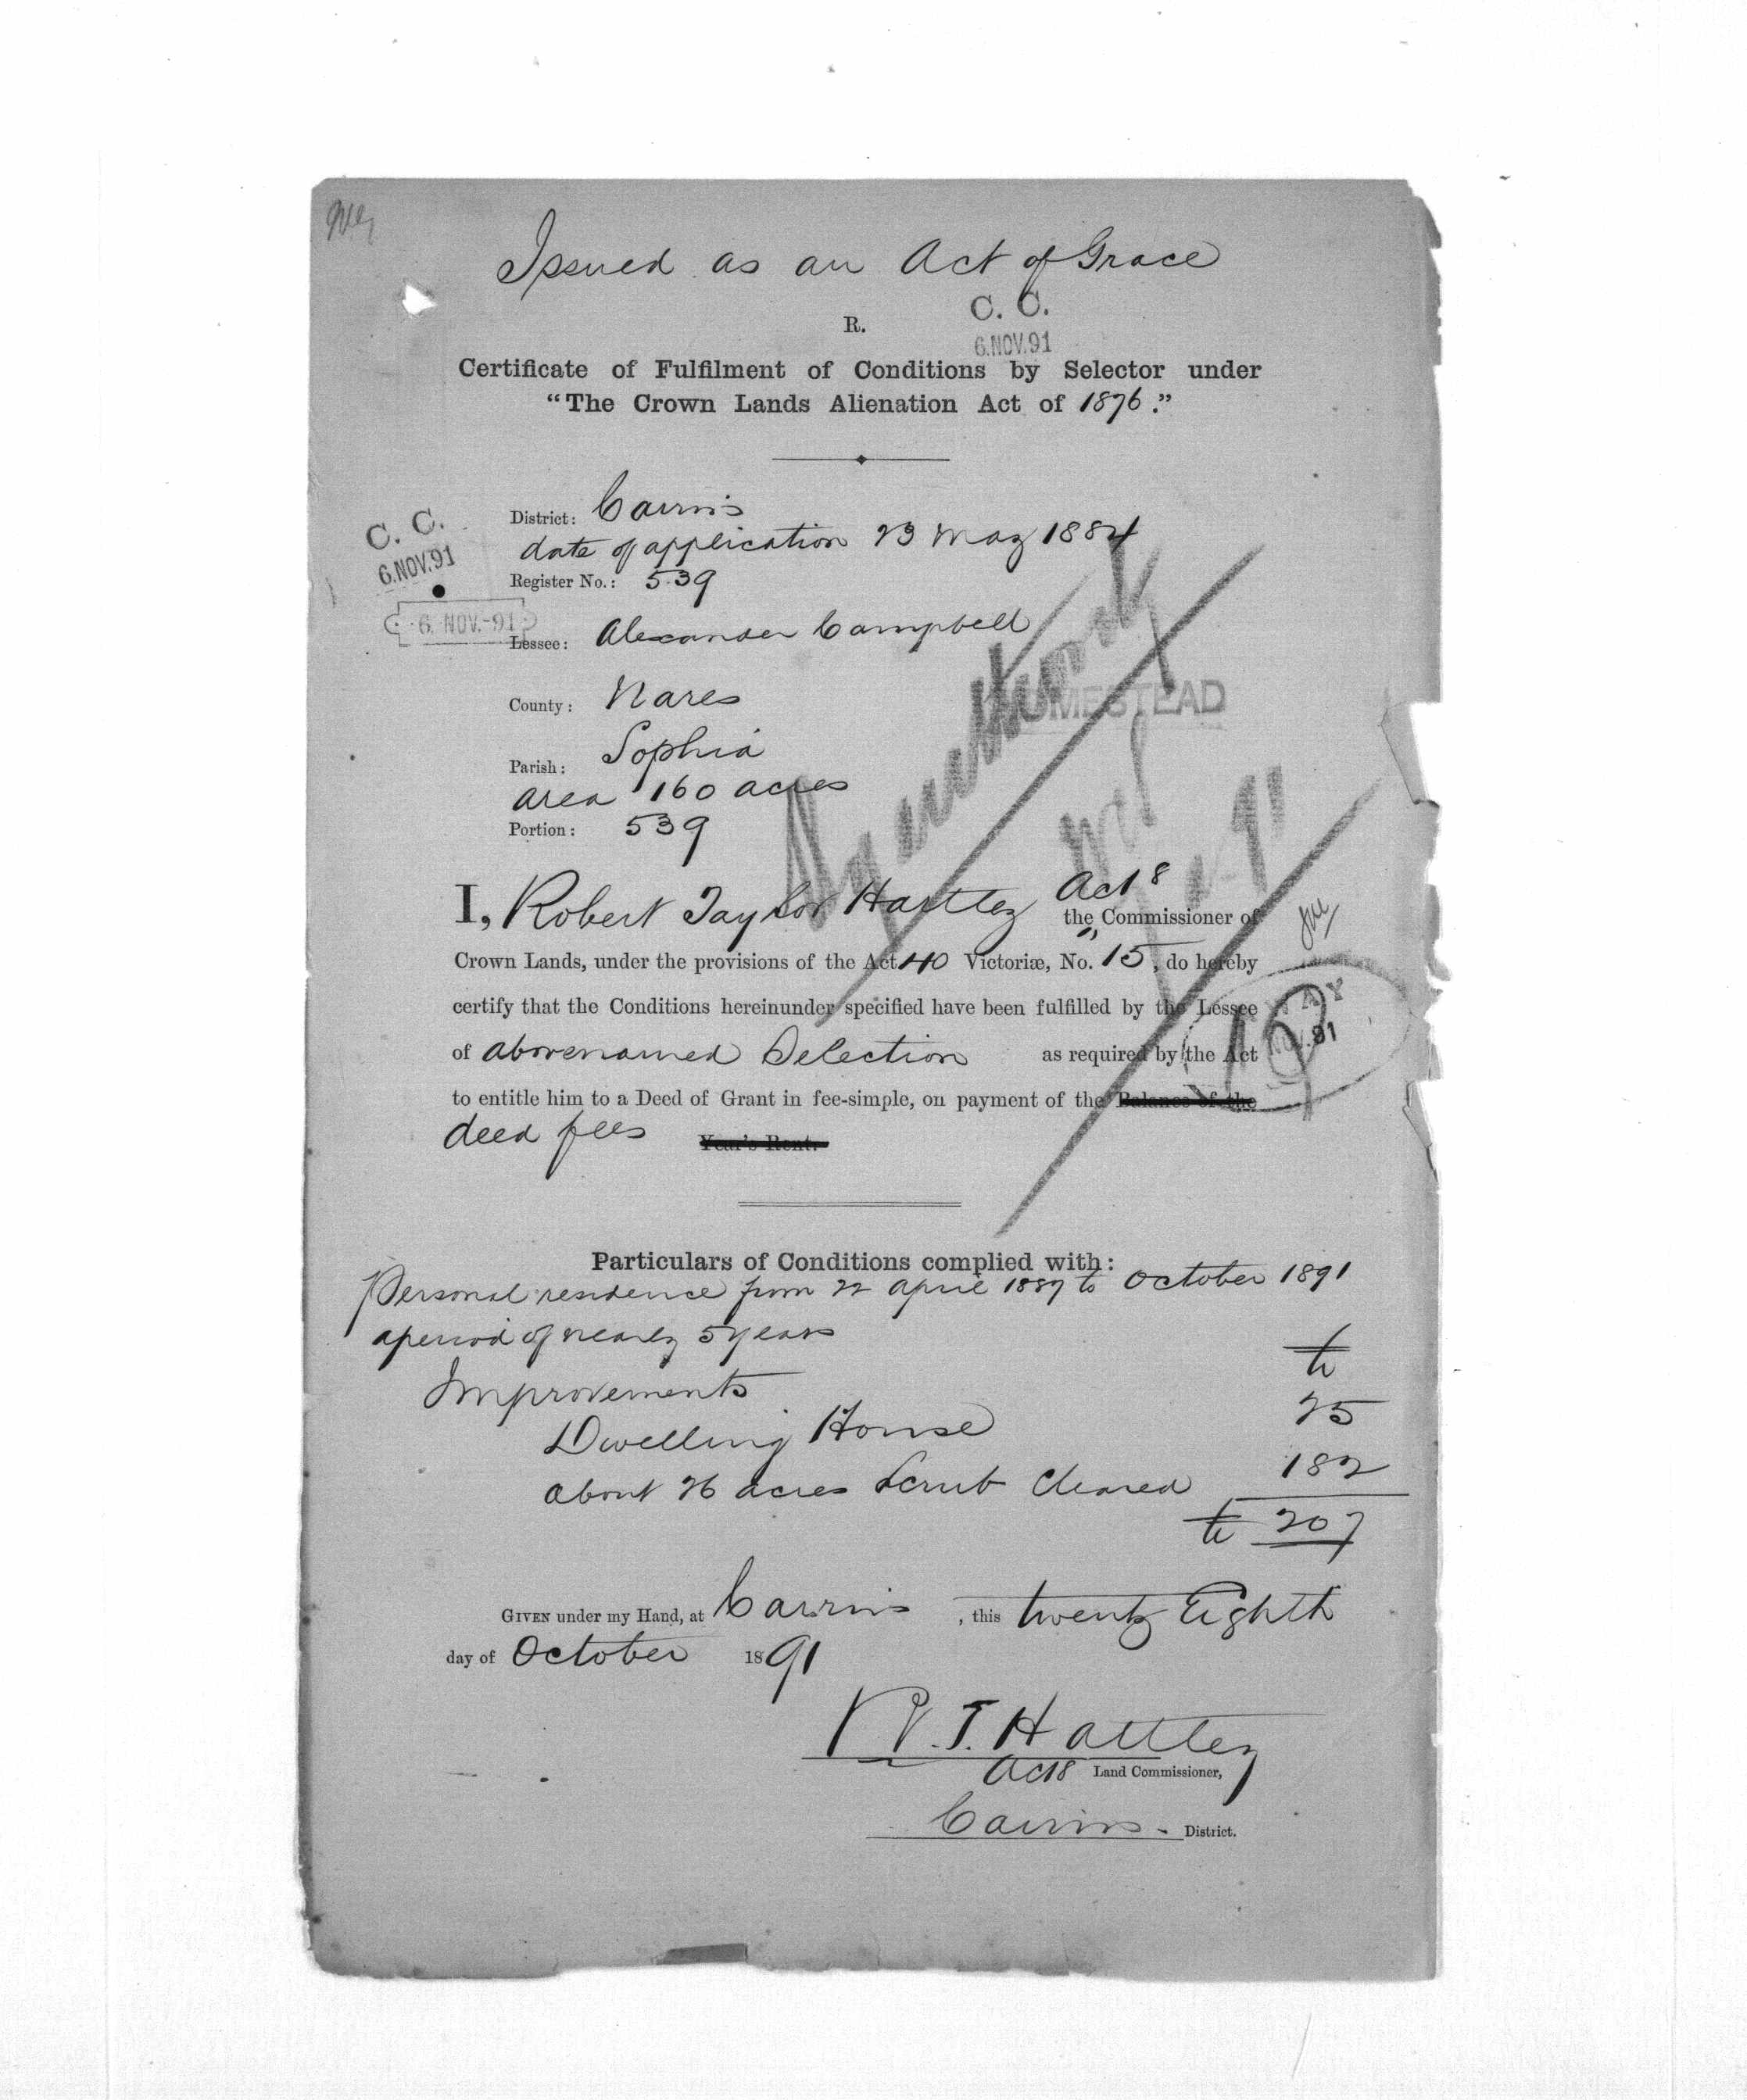 Issued as an Act of Grace
C. C.
R.
6.NOV.91
Certificate of Fulfilment of Conditions by Selector under
"The Crown Lands Alienation Act of 1876."
District: Cairns
date of application 23 May 1884
C. C.
6.NOV.91
Register No.: 539
6. NOV.-91
Lessee: Alexander Campbell
HOMESTEAD
County: Nares
Parish: Sophia
area 160 acres
Portion: 539
I, Robert Taylor Hartley Actg the Commissioner of
Crown Lands, under the provisions of the Act 40 Victoriæ, No. 15, do hereby
certify that the Conditions hereinunder specified have been fulfilled by the Lessee
of abovenamed Selection as required by the Act
to entitle him to a Deed of Grant in fee-simple, on payment of the Balance of the
deed fees Year's Rent.
Particulars of Conditions complied with:
Personal residence from 22 April 1887 to October 1891
a period of nearly 5 years
£
Improvements
Dwelling House 25
about 26 acres Scrub Cleared 182
£ 207
GIVEN under my Hand, at Cairns, this twenty Eighth
day of October 1891
R. T. Hartley
Actg Land Commissioner,
Cairns. District.